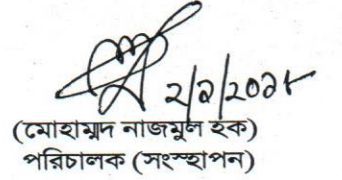 ২/৯/২০২৫
(মোহাম্মদ নাজমুল হক)
পরিচালক (সংস্হাপন)